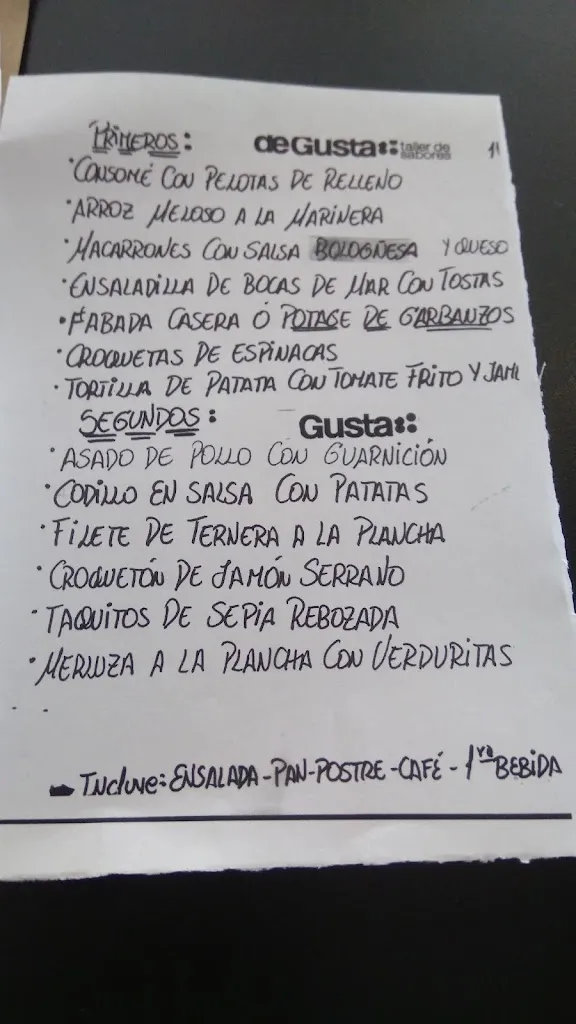 PRIMEROS: deGusta:: taller de sabores
·CONSOMÉ CON PELOTAS DE RELLENO
·ARROZ MELOSO A LA MARINERA
·MACARRONES CON SALSA BOLOGÑESA Y QUESO
·ENSALADILLA DE BOCAS DE MAR CON TOSTAS
·FABADA CASERA O POTAGE DE GARBANZOS
·CROQUETAS DE ESPINACAS
·TORTILLA DE PATATA CON TOMATE FRITO Y JAM
SEGUNDOS: Gusta::
·ASADO DE POLLO CON GUARNICIÓN
·CODILLO EN SALSA CON PATATAS
·FILETE DE TERNERA A LA PLANCHA
·CROQUETÓN DE JAMÓN SERRANO
·TAQUITOS DE SEPIA REBOZADA
·MERLUZA A LA PLANCHA CON VERDURITAS
Incluye: ENSALADA-PAN-POSTRE-CAFÉ-1ra BEBIDA